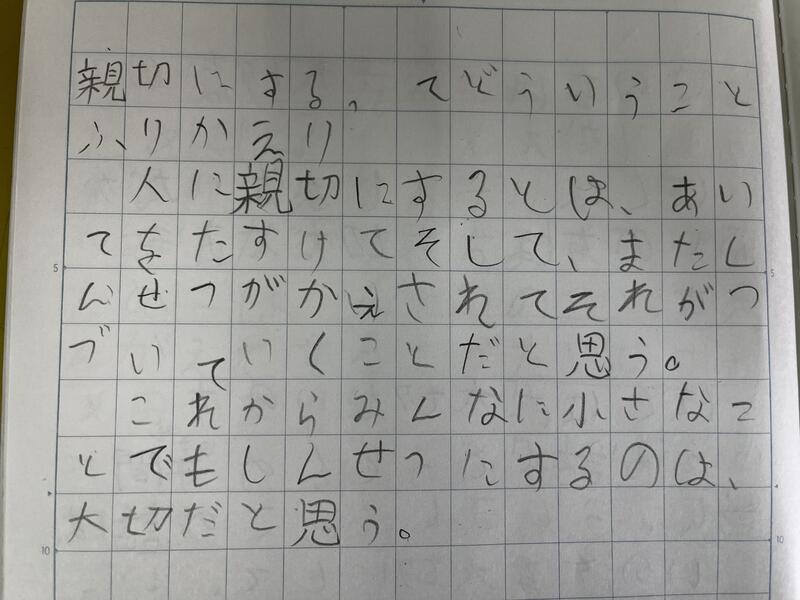 親切にする、てどういうこと
ふりかえり
人に親切にするとは、あい
てをたすけてそして、またし
んせつがかえされてそれがつ
づいていくことだと思う。
これからみんなに小さなこ
とでもしんせつにするのは、
大切だと思う。